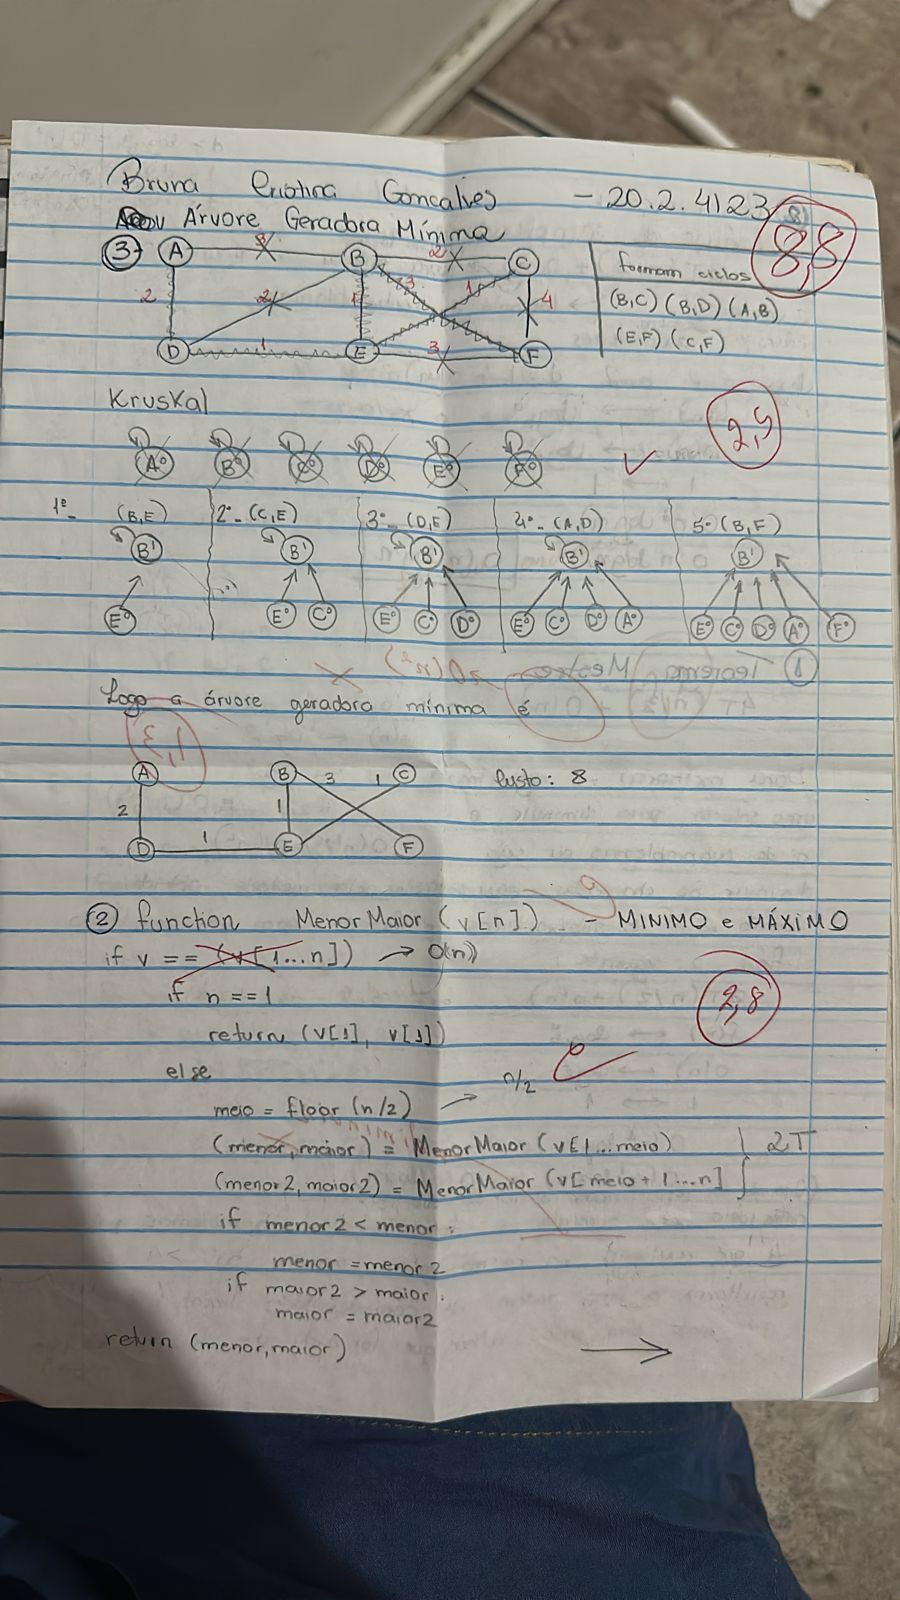 Bruna Cristina Goncalves - 20.2.4123
8,8
Árvore Geradora Mínima
3- A 3 B 2 C
2 2 1 3 1 4
D 1 E 3 F
formam ciclos
(B,C) (B,D) (A,B)
(E,F) (C,F)
Kruskal
2,5
A⁰ B⁰ C⁰ D⁰ E⁰ F⁰
1º- (B,E) 2º- (C,E) 3º- (D,E) 4º- (A,D) 5º (B,F)
B¹ B¹ B¹ B¹ B¹
E⁰ E⁰ C⁰ E⁰ C⁰ D⁰ E⁰ C⁰ D⁰ A⁰ E⁰ C⁰ D⁰ A⁰ F⁰
Logo a árvore geradora mínima é
A B 3 1 C Custo: 8
2 1
D 1 E F
2 function MenorMaior (v[n]) - MINIMO e MÁXIMO
if v == (v[1...n]) → O(n)
2,8
if n == 1
return (v[1], v[1])
else
n/2
meio = floor (n/2) →
(menor, maior) = MenorMaior (v[1...meio) 2T
(menor2, maior2) = MenorMaior (v[meio + 1...n]
if menor2 < menor:
menor = menor2
if maior2 > maior:
maior = maior2
return (menor, maior)